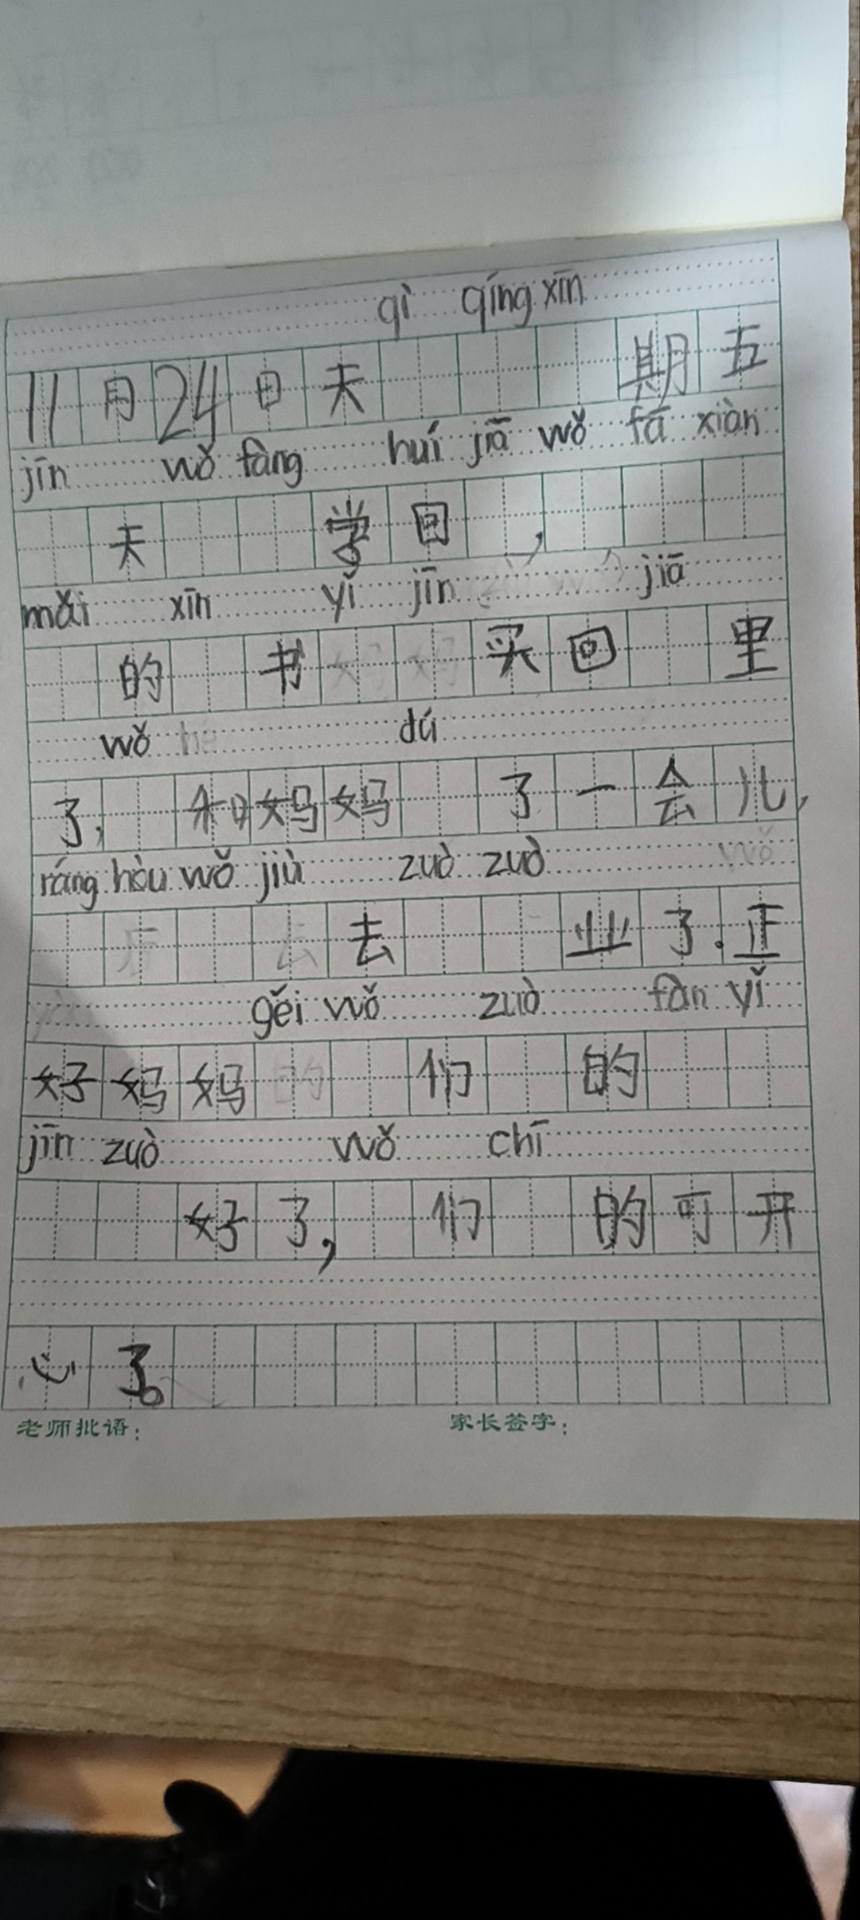 qì qíng xīn
11月24日天 期五
jīn wǒ fàng huí jiā wǒ fā xiàn
天 学回 ，
mǎi xīn yǐ jīn jiā
的 书 买回 里
wǒ dú
了， 和妈妈 了一会儿，
ráng hòu wǒ jiù zuò zuò
去 业了．正
gěi wǒ zuò fàn yǐ
好妈妈 们 的
jīn zuò wǒ chī
好了， 们 的可开
心了。
老师批语： 家长签字：